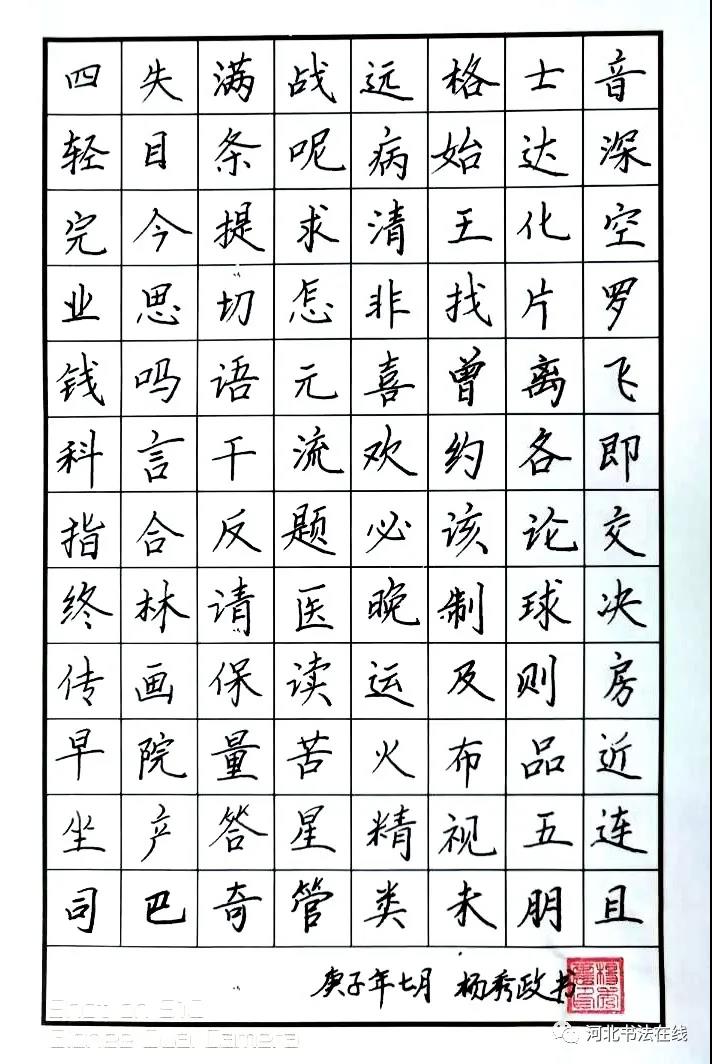 四失满战远格士音
轻目条呢病始达深
完今提求清王化空
业思切怎非找片罗
钱吗语元喜曾离飞
科言干流欢约各即
指合反题必该论交
终林请医晚制球决
传画保读运及则房
早院量苦火布品近
坐产答星精视五连
司巴奇管类未朋且
庚子年七月 杨秀政书
Shot on S10
Gionee Dual Camera
河北书法在线